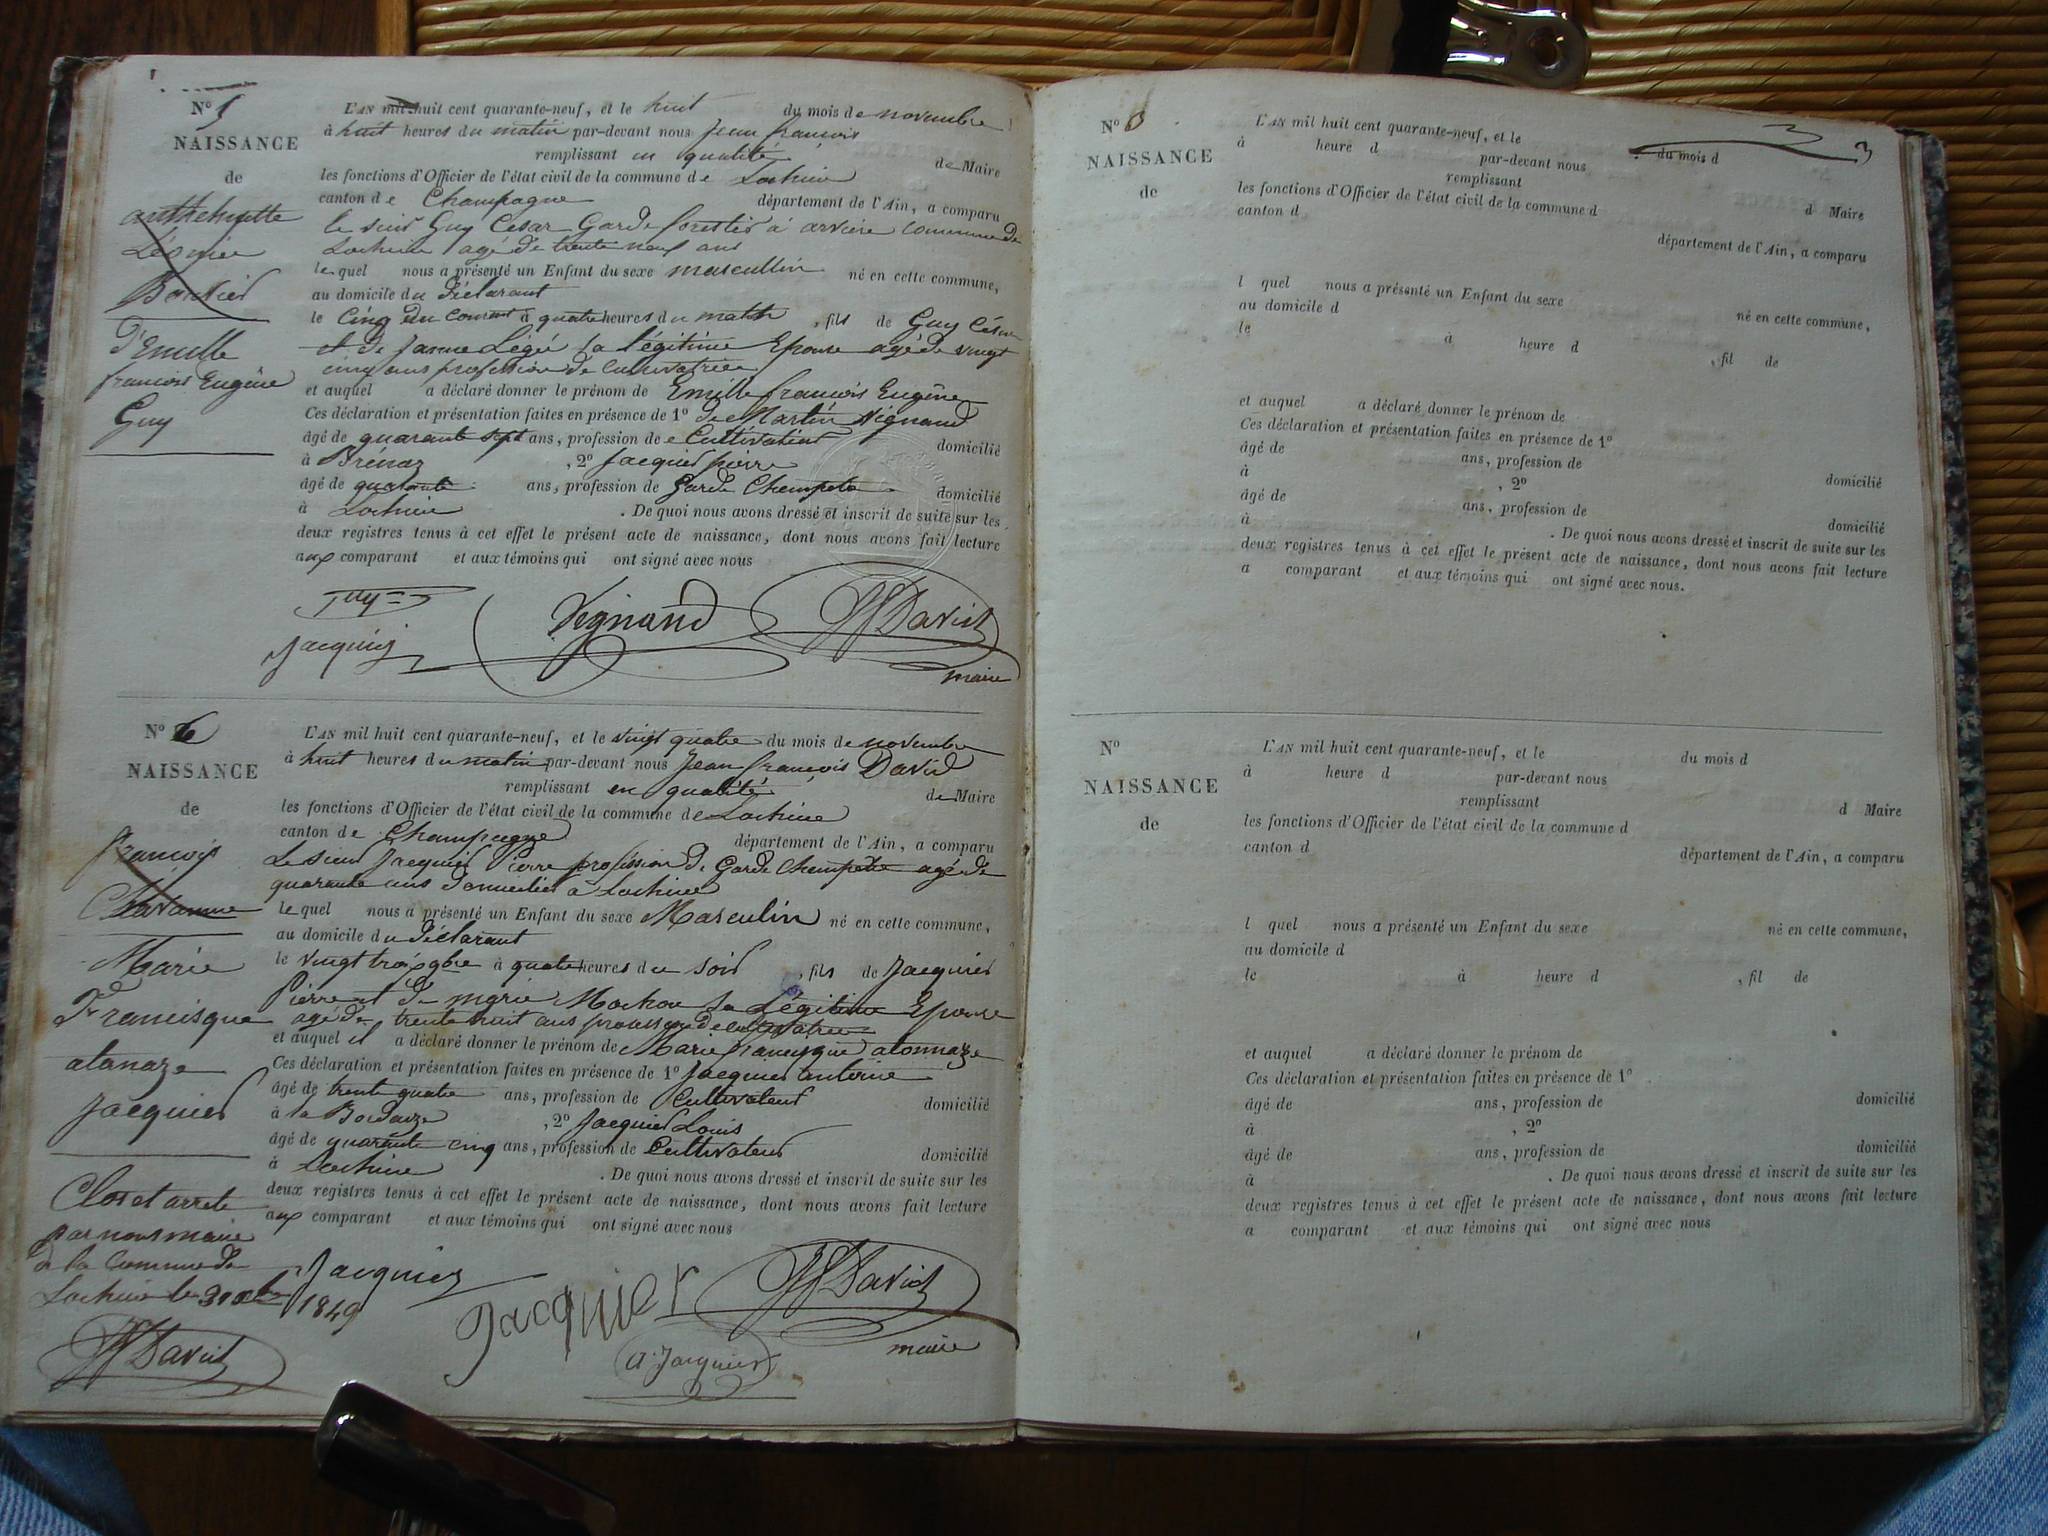 N° 5
NAISSANCE
de
anthelmette
Léonie
Bardier
d'Emille
francois Eugène
Guy
L'AN mil huit cent quarante-neuf, et le huit du mois de novembre
à huit heures du matin par-devant nous Jean francois
remplissant en qualité de Maire
les fonctions d'Officier de l'état civil de la commune de Lochieu
canton de Champagne département de l'Ain, a comparu
le sieur Guy César Garde forestier à arvière commune de
Lochieu agé de trente neuf ans
lequel nous a présenté un Enfant du sexe mascullin né en cette commune,
au domicile du Déclarant
le Cinq du courant à quatre heures du matin, fils de Guy César
et de Jeanne Légée sa légitime Epouse agé de vingt
cinq ans profession de Cultivatrice
et auquel a déclaré donner le prénom de Emille francois Eugène
Ces déclaration et présentation faites en présence de 1° de Martin Vignand
âgé de quarante sept ans, profession de Cultivateur domicilié
à Brénaz, 2° Jacquier pierre
âgé de quarante ans, profession de Garde Champetre domicilié
à Lochieu. De quoi nous avons dressé et inscrit de suite sur les
deux registres tenus à cet effet le présent acte de naissance, dont nous avons fait lecture
aux comparant et aux témoins qui ont signé avec nous
Guy
Vignand
JF David
Jacquier
maire
N° 6
NAISSANCE
de
francois
Chavanne
Marie
Francisque
atanaze
Jacquier
L'AN mil huit cent quarante-neuf, et le vingt quatre du mois de novembre
à huit heures du matin par-devant nous Jean francois David
remplissant en qualité de Maire
les fonctions d'Officier de l'état civil de la commune de Lochieu
canton de Champagne département de l'Ain, a comparu
Le sieur Jacquier Pierre profession de Garde Champetre agé de
quarante ans domicilié à Lochieu
lequel nous a présenté un Enfant du sexe Masculin né en cette commune,
au domicile du Déclarant
le vingt trois 9bre à quatre heures du soir, fils de Jacquier
Pierre et de marie Mochon sa Légitime Epouse
agé de trente huit ans profession de cultivatrice
et auquel il a déclaré donner le prénom de Marie francisque atonnaze
Ces déclaration et présentation faites en présence de 1° Jacquier antoine
âgé de trente quatre ans, profession de Cultivateur domicilié
à la Bordaize, 2° Jacquier Louis
âgé de quarante cinq ans, profession de Cultivateur domicilié
à Lochieu. De quoi nous avons dressé et inscrit de suite sur les
deux registres tenus à cet effet le présent acte de naissance, dont nous avons fait lecture
aux comparant et aux témoins qui ont signé avec nous
Clos et arrete
par nous maire
de la Commune de
Lochieu le 31 xbre 1849
JF David
Jacquier
Jacquier
JF David
maire
a. Jacquier
3
3
N°
NAISSANCE
de
L'AN mil huit cent quarante-neuf, et le du mois d
à heure d par-devant nous
remplissant d Maire
les fonctions d'Officier de l'état civil de la commune d
canton d département de l'Ain, a comparu
l quel nous a présenté un Enfant du sexe né en cette commune,
au domicile d
le à heure d, fil de
et auquel a déclaré donner le prénom de
Ces déclaration et présentation faites en présence de 1°
âgé de ans, profession de domicilié
à, 2°
âgé de ans, profession de domicilié
à. De quoi nous avons dressé et inscrit de suite sur les
deux registres tenus à cet effet le présent acte de naissance, dont nous avons fait lecture
a comparant et aux témoins qui ont signé avec nous.
N°
NAISSANCE
de
L'AN mil huit cent quarante-neuf, et le du mois d
à heure d par-devant nous
remplissant d Maire
les fonctions d'Officier de l'état civil de la commune d
canton d département de l'Ain, a comparu
l quel nous a présenté un Enfant du sexe né en cette commune,
au domicile d
le à heure d, fil de
et auquel a déclaré donner le prénom de
Ces déclaration et présentation faites en présence de 1°
âgé de ans, profession de domicilié
à, 2°
âgé de ans, profession de domicilié
à. De quoi nous avons dressé et inscrit de suite sur les
deux registres tenus à cet effet le présent acte de naissance, dont nous avons fait lecture
a comparant et aux témoins qui ont signé avec nous